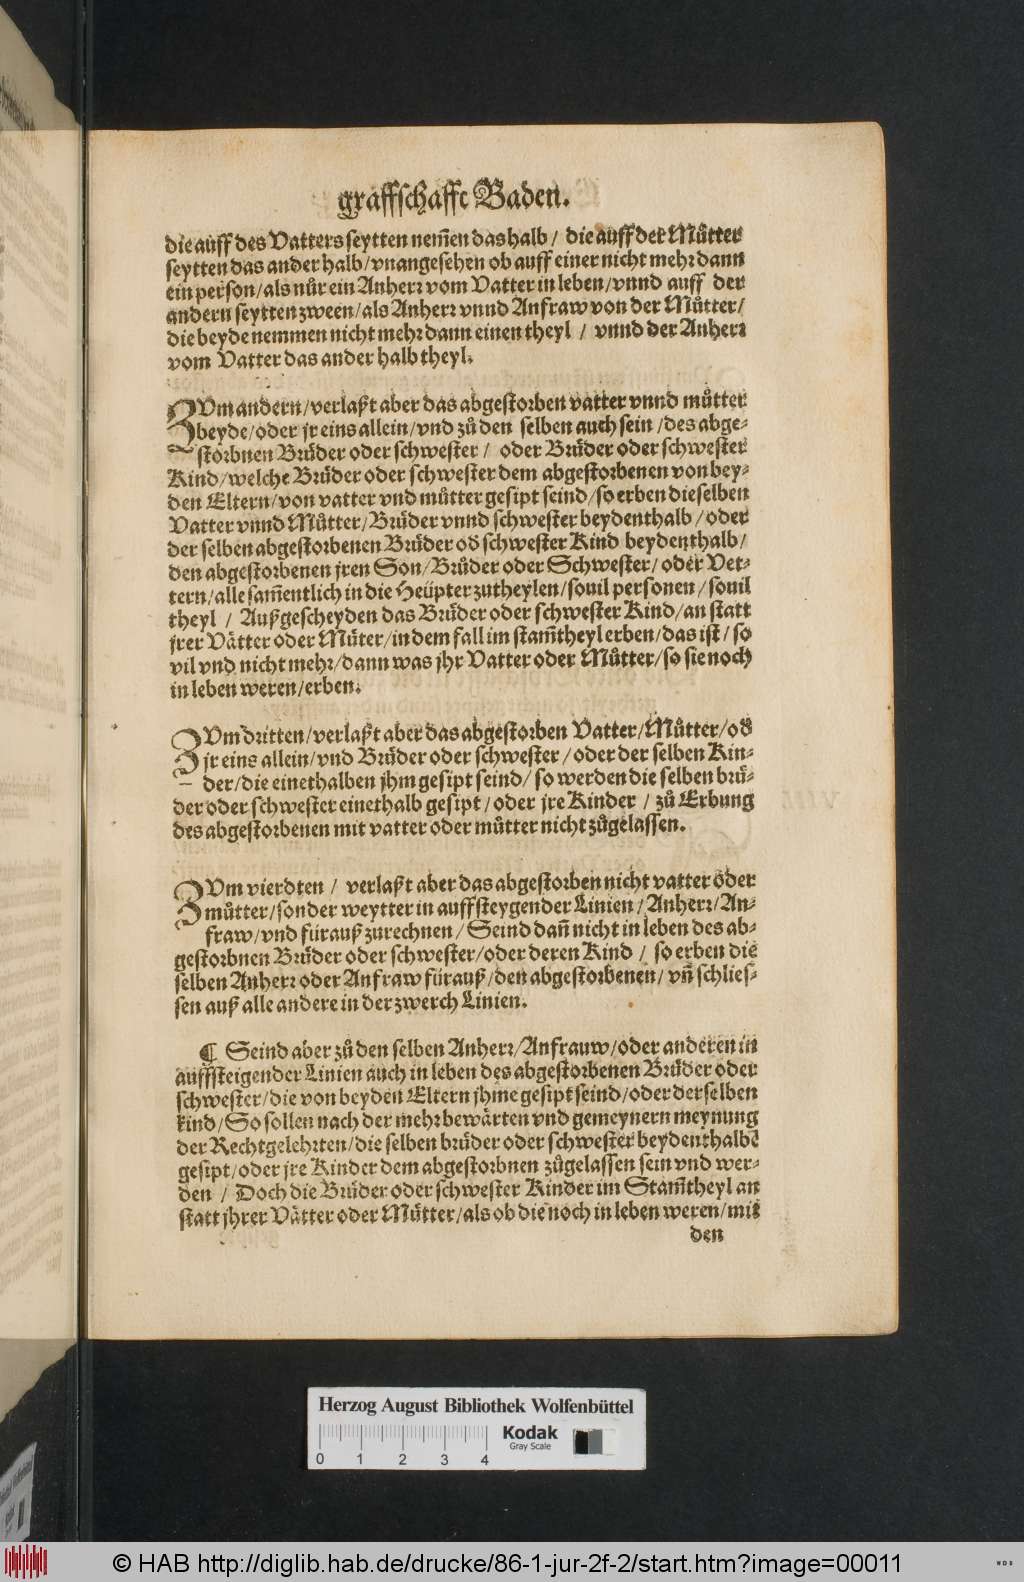 graffschafft Baden.
die auff des Vatters seytten nem̃en das halb / die auff der Můtter
seytten das ander halb / vnangesehen ob auff einer nicht mehr dann
ein person / als nůr ein Anherr vom Vatter in leben / vnnd auff der
andern seytten zween / als Anherr vnnd Anfraw von der Můtter /
die beyde nemmen nicht mehr dann einen theyl / vnnd der Anherr
vom Vatter das ander halb theyl.
ZVm andern / verlaßt aber das abgestorben vatter vnnd můtter
beyde / oder jr eins allein / vnd zů den selben auch sein / des abge-
storbnen Brůder oder schwester / oder Brůder oder schwester
Kind / welche Brůder oder schwester dem abgestorbenen von bey-
den Eltern / von vatter vnd můtter gesipt seind / so erben dieselben
Vatter vnnd Můtter / Brůder vnnd schwester beydenthalb / oder
der selben abgestorbenen Brůder od̃ schwester Kind beydenthalb /
den abgestorbenen jren Son / Brůder oder Schwester / oder Vet-
tern / alle sam̃entlich in die Heüpter zutheylen / souil personen / souil
theyl / Außgescheyden das Brůder oder schwester Kind / an statt
jrer Vätter oder Můter / in dem fall im stam̃theyl erben / das ist / so
vil vnd nicht mehr / dann was jhr Vatter oder Můtter / so sie noch
in leben weren / erben.
ZVm dritten / verlaßt aber das abgestorben Vatter / Můtter / od̃
jr eins allein / vnd Brůder oder schwester / oder der selben Kin-
der / die einethalben jhm gesipt seind / so werden die selben brů-
der oder schwester einethalb gesipt / oder jre Kinder / zů Erbung
des abgestorbenen mit vatter oder můtter nicht zůgelassen.
ZVm vierdten / verlaßt aber das abgestorben nicht vatter oder
můtter / sonder weytter in auffsteygender Linien / Anherr / An-
fraw / vnd fürauß zurechnen / Seind dañ nicht in leben des ab-
gestorbnen Brůder oder schwester / oder deren Kind / so erben die
selben Anherr oder Anfraw fürauß / den abgestorbenen / vñ schlies-
sen auß alle andere in der zwerch Linien.
¶ Seind aber zů den selben Anherr / Anfrauw / oder anderen in
auffsteigender Linien auch in leben des abgestorbenen Brůder oder
schwester / die von beyden Eltern jhme gesipt seind / oder derselben
kind / So sollen nach der mehr bewärten vnd gemeynern meynung
der Rechtgelehrten / die selben brůder oder schwester beydenthalb
gesipt / oder jre Kinder dem abgestorbnen zůgelassen sein vnd wer-
den / Doch die Brůder oder schwester Kinder im Stam̃theyl an
statt jhrer Vätter oder Můtter / als ob die noch in leben weren / mit
den
Herzog August Bibliothek Wolfenbüttel
Kodak
Gray Scale
0 1 2 3 4
© HAB http://diglib.hab.de/drucke/86-1-jur-2f-2/start.htm?image=00011